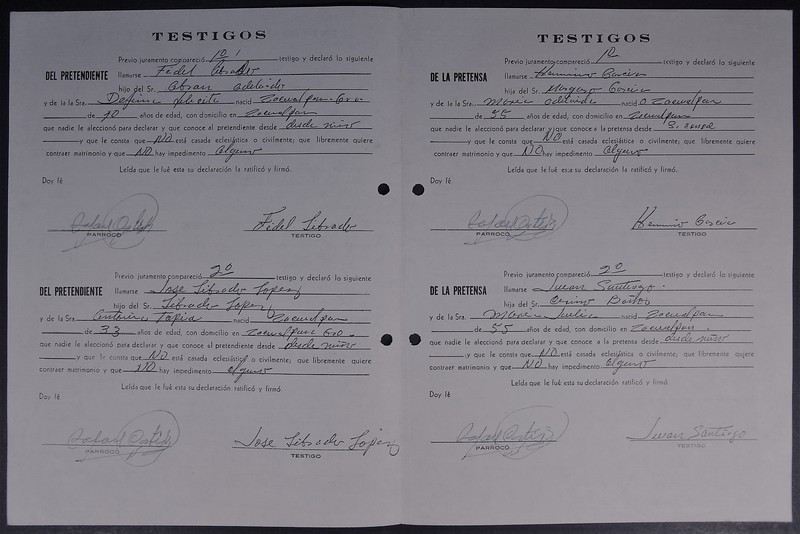 TESTIGOS
Previo juramento compareció 1o testigo y declaró lo siguiente
DEL PRETENDIENTE llamarse Fidel Librado
hijo del Sr. Abran Adelaido
y de la Sra. nacid Zacualpan Gro.
de 40 años de edad, con domicilio en Zacualpan
que nadie le aleccionó para declarar y que conoce al pretendiente desde niño
y que le consta que NO está casada eclesiástica o civilmente; que libremente quiere
contraer matrimonio y que NO hay impedimento alguno
Leída que le fué esta su declaración la ratificó y firmó.
Doy fé
Rafael Ortiz Fidel Librado
PARROCO TESTIGO
Previo juramento compareció 2o testigo y declaró lo siguiente
DEL PRETENDIENTE llamarse Jose Librado Lopez
hijo del Sr. Librado Lopez
y de la Sra. Antonia Tapia nacid Zacualpan
de 33 años de edad, con domicilio en Zacualpan Gro
que nadie le aleccionó para declarar y que conoce al pretendiente desde niño
y que le consta que NO está casada eclesiástica o civilmente; que libremente quiere
contraer matrimonio y que NO hay impedimento alguno
Leída que le fué esta su declaración ratificó y firmó.
Doy fé
Rafael Ortiz Jose Librado Lopez
PARROCO TESTIGO
TESTIGOS
Previo juramento compareció 1o testigo y declaró lo siguiente
DE LA PRETENSA llamarse Herminio Garcia
hijo del Sr. Margaro Garcia
y de la Sra. Maria Adelaida nacid o Zacualpan
de 55 años de edad, con domicilio en Zacualpan
que nadie le aleccionó para declarar y que conoce a la pretensa desde
y que le consta que NO está casada eclesiástica o civilmente; que libremente quiere
contraer matrimonio y que NO hay impedimento alguno
Leída que le fué esta su declaración la ratificó y firmó.
Doy fé
Rafael Ortiz Herminio Garcia
PARROCO TESTIGO
Previo juramento compareció 2o testigo y declaró lo siguiente
DE LA PRETENSA llamarse Juan Santiago
hija del Sr.
y de la Sra. Maria Julia nacid Zacualpan
de 55 años de edad, con domicilio en Zacualpan.
que nadie le aleccionó para declarar y que conoce a la pretensa desde niño
y que le consta que NO está casada eclesiástica o civilmente; que libremente quiere
contraer matrimonio y que NO hay impedimento alguno
Leída que le fué esta su declaración ratificó y firmó.
Doy fé
Rafael Ortiz Juan Santiago
PARROCO TESTIGO